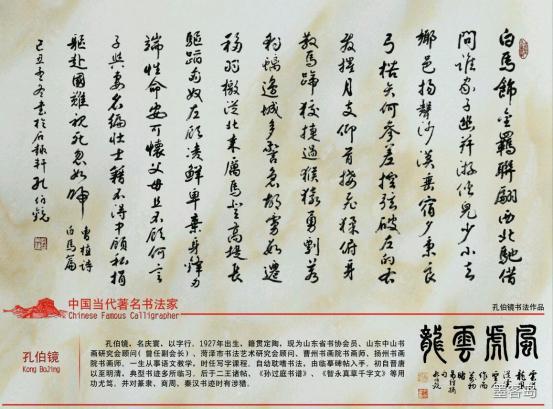 白馬飾金羈聯翩西北馳借
問誰家子幽并游俠兒少小去
鄉邑揚聲沙漠垂宿夕秉良
弓楛矢何參差控弦破左的右
發摧月支仰首接飛猱俯身
散馬蹄狡捷過猴猿勇剽若
豹螭邊城多警急胡虜數遷
移羽檄從北來厲馬登高堤長
驅蹈匈奴左顧凌鮮卑棄身鋒刃
端性命安可懷父母且不顧何言
子與妻名編壯士籍不得中顧私捐
軀赴國難視死忽如歸
曹植詩
白馬篇
己丑冬書於石板軒孔伯鏡
中国当代著名书法家
Chinese Famous Calligrapher
孔伯镜书法作品
孔伯镜
Kong BoJing
孔伯镜，名庆寰、以字行，1927年出生，籍贯定陶，现为山东省书协会员、山东中山书
画研究会顾问(曾任副会长)、菏泽市书法艺术研究会顾问、曹州书画院书画师、扬州书画
院书画师。一生从事语文教学，时任写字课程。自幼耽嗜书法，由临摹碑帖入手，初自晋唐
以至明清，典型书迹多所临习，后于二王诸帖、《孙过庭书谱》、《智永真草千字文》等用
功尤笃，并对篆隶、商周、秦汉书迹时有涉猎。
風虎雲龍
墨客岛